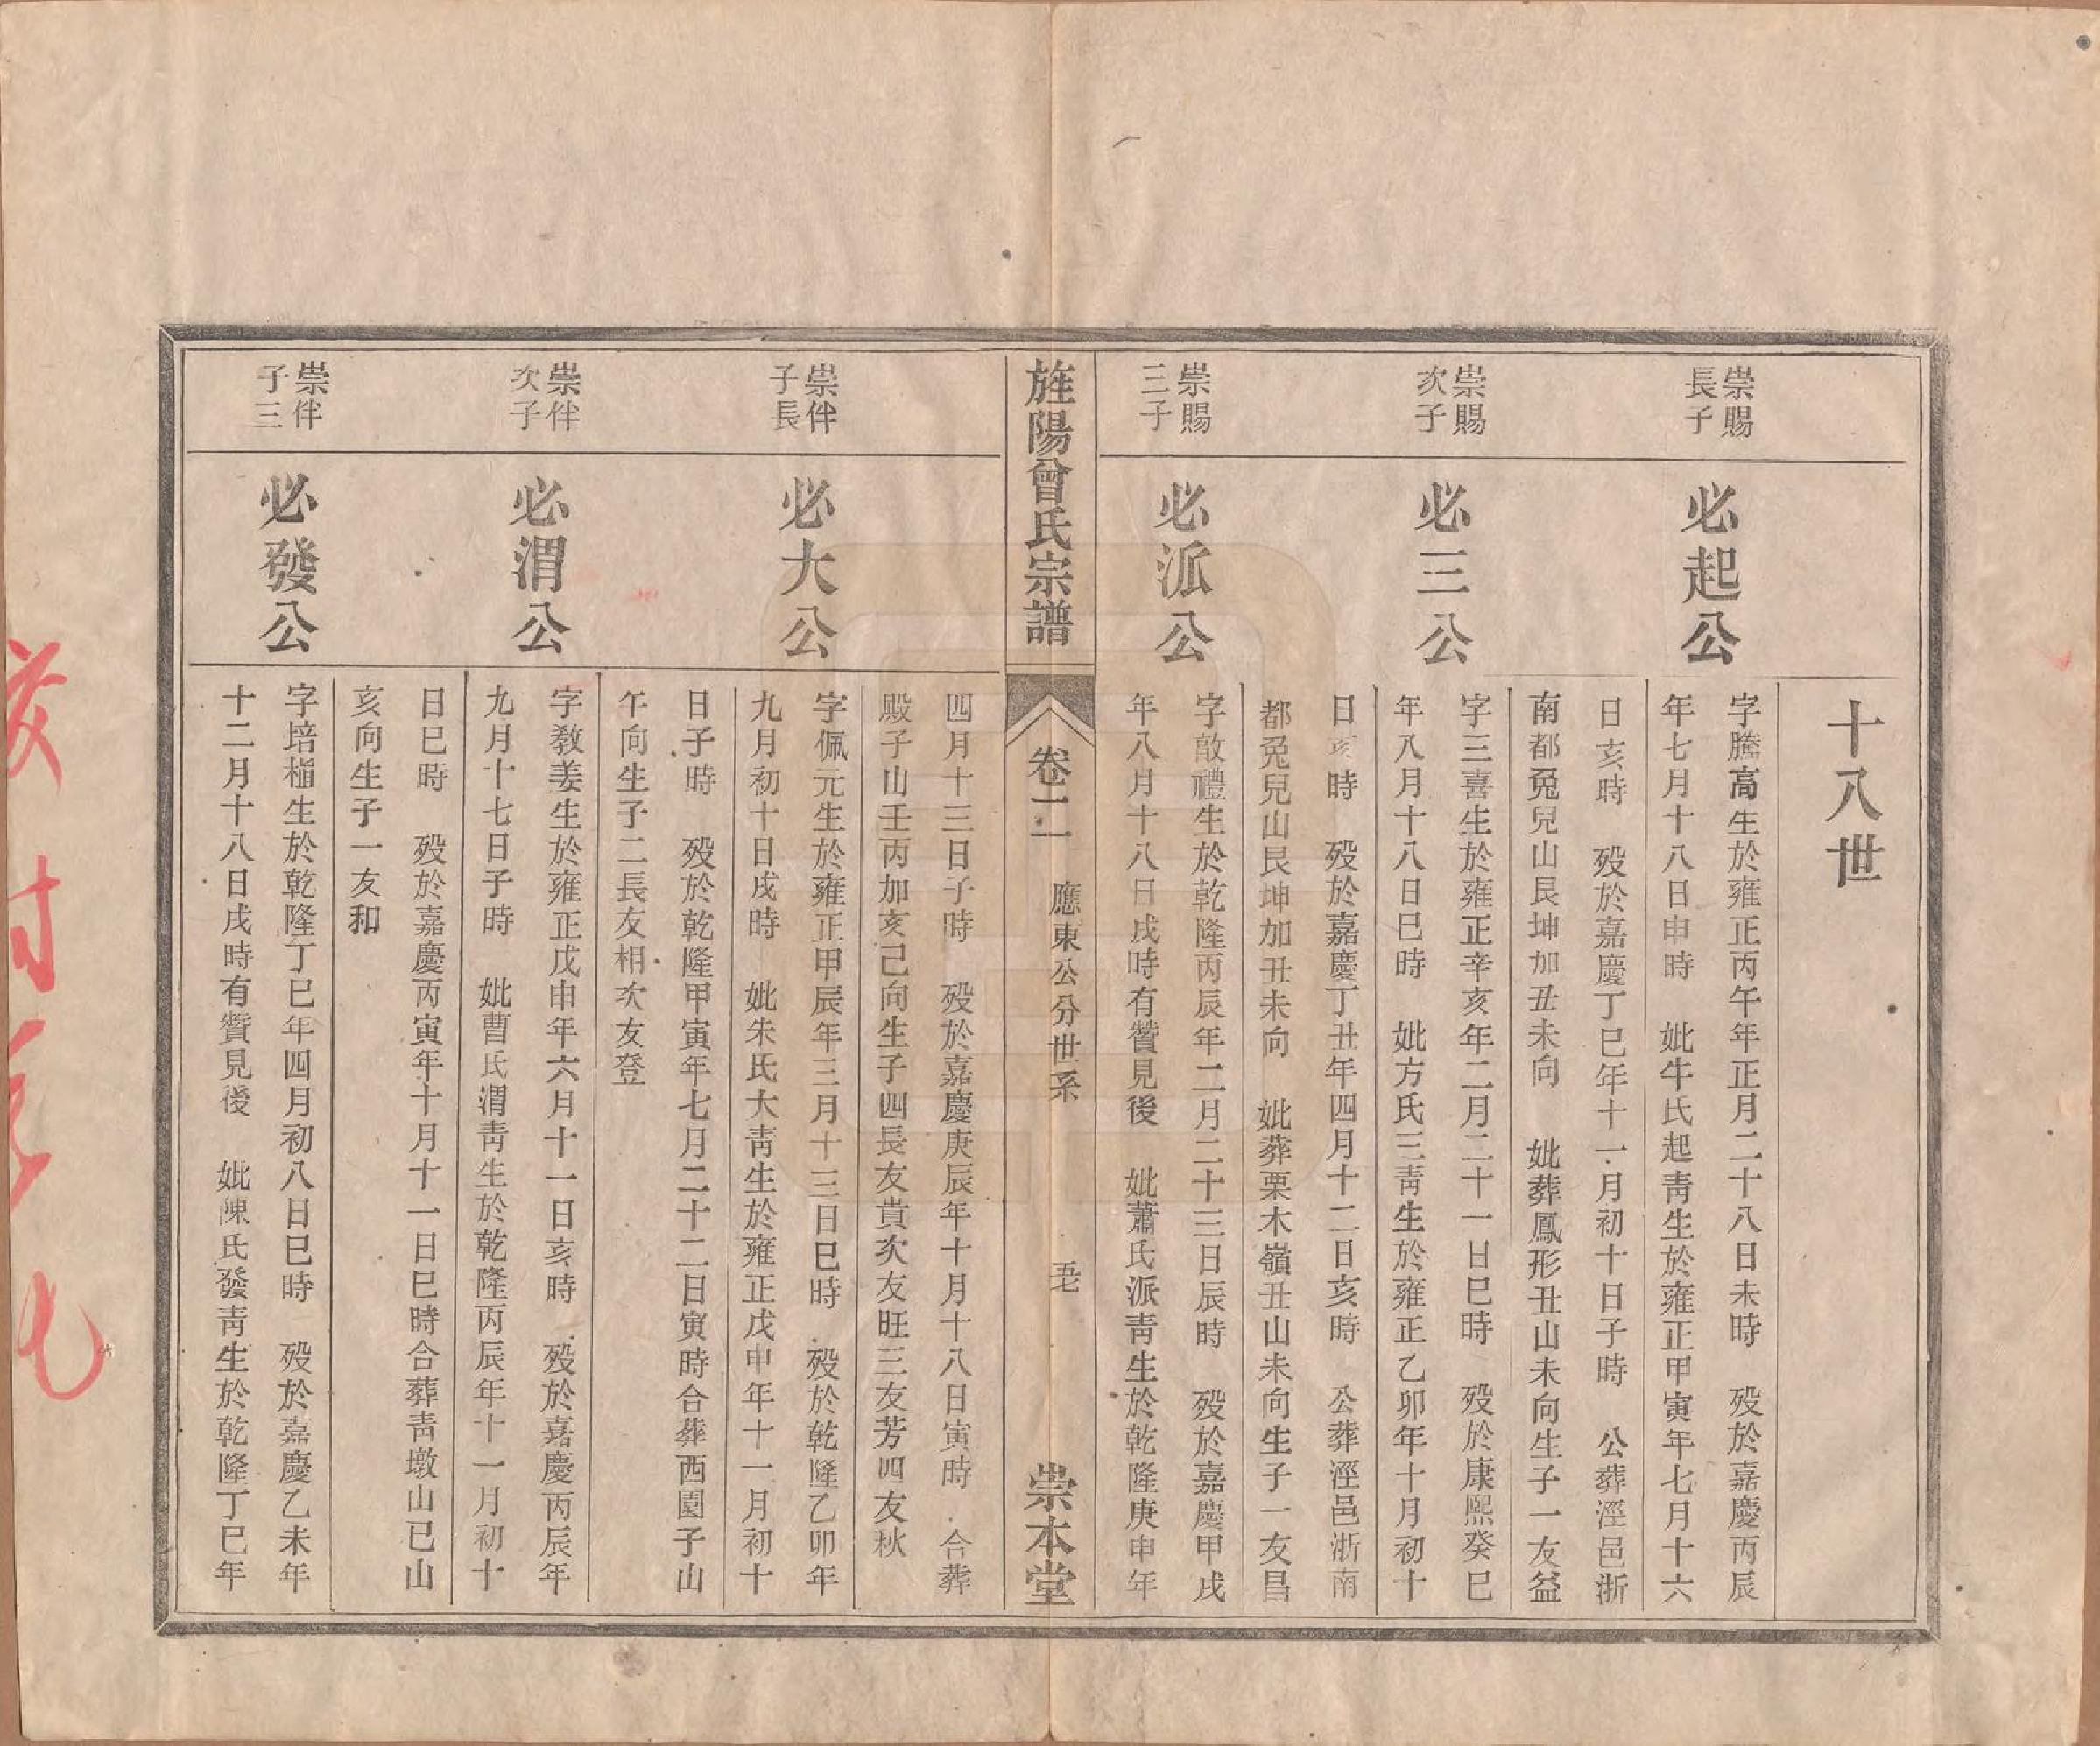 十八世
崇賜
長子
必起公
字騰高生於雍正丙午年正月二十八日未時 歿於嘉慶丙辰
年七月十八日申時 妣牛氏起靑生於雍正甲寅年七月十六
日亥時 歿於嘉慶丁巳年十一月初十日子時 公葬涇邑浙
南都兔兒山艮坤加丑未向 妣葬鳳形丑山未向生子一友益
崇賜
次子
必三公
字三喜生於雍正辛亥年二月二十一日巳時 歿於康熙癸巳
年八月十八日巳時 妣方氏三靑生於雍正乙卯年十月初十
日亥時 歿於嘉慶丁丑年四月十二日亥時 公葬涇邑浙南
都兔兒山艮坤加丑未向 妣葬栗木嶺丑山未向生子一友昌
崇賜
三子
必派公
字敵禮生於乾隆丙辰年二月二十三日辰時 歿於嘉慶甲戌
年八月十八日戌時有贊見後 妣蕭氏派靑生於乾隆庚申年
旌陽曾氏宗譜
卷二 應東公分世系
崇本堂
四月十三日子時 歿於嘉慶庚辰年十月十八日寅時 合葬
殿子山壬丙加亥己向生子四長友貴次友旺三友芳四友秋
崇伴
子長
必大公
字佩元生於雍正甲辰年三月十三日巳時 歿於乾隆乙卯年
九月初十日戌時 妣朱氏大靑生於雍正戊申年十一月初十
日子時 歿於乾隆甲寅年七月二十二日寅時合葬西園子山
午向生子二長友相次友登
崇伴
次子
必渭公
字教姜生於雍正戊申年六月十一日亥時 歿於嘉慶丙辰年
九月十七日子時 妣曹氏渭靑生於乾隆丙辰年十一月初十
日巳時 歿於嘉慶丙寅年十月十一日巳時合葬靑墩山巳山
亥向生子一友和
崇伴
子三
必發公
字培楅生於乾隆丁巳年四月初八日巳時 歿於嘉慶乙未年
十二月十八日戌時有贊見後 妣陳氏發靑生於乾隆丁巳年